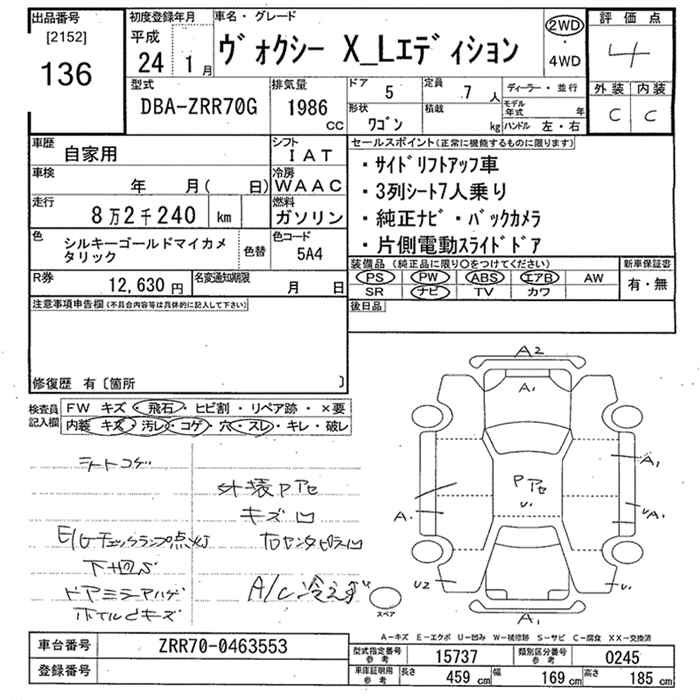 出品番号
[2152]
136
初度登録年月
平成
24年 1月
車名・グレード
ヴォクシー X_Lエディション
2WD
・
4WD
評価点
4
外装 内装
C C
型式
DBA-ZRR70G
排気量
1986
CC
ドア
5
定員
7 人
形状
ワゴン
積載
kg
ディーラー・並行
モデル
年式 年
ハンドル 左・右
車歴
自家用
シフト
I A T
車検
年 月( 日)
冷房
W A A C
走行
8万2千240 km
燃料
ガソリン
色
シルキーゴールドマイカメ
タリック
色替
色コード
5A4
R券
12,630 円
名変通知期限
月 日
セールスポイント(正常に機能するものに限ります)
・サイドリフトアップ車
・3列シート7人乗り
・純正ナビ・バックカメラ
・片側電動スライドドア
装備品 (純正品に限り○をつけてください)
PS PW ABS エアB AW
SR ナビ TV カワ
新車保証書
有・無
後日品
注意事項申告欄(不具合内容等は具体的に記入して下さい)
修復歴 有〔箇所 〕
検査員
記入欄
FW キズ・飛石・ヒビ割・リペア跡・×要
内装 キズ・汚レ・コゲ・穴・スレ・キレ・破レ
シートコゲ
外装Pアセ
キズ凹
E/Gチェックランプ点灯
右センタピラ凹
下回サビ
ドアミラーハゲ
A/C冷えず
ホイルCキズ
A2
A1
A1
Pアセ
U1
A1
UA1
U2
U1
A1
スペア
A-キズ E-エクボ U-凹み W-補修跡 S-サビ C-腐食 XX-交換済
車台番号
ZRR70-0463553
登録番号
型式指定番号
参考
15737
類別区分番号
参考
0245
車庫証明用
参考
長さ
459 cm
幅
169 cm
高さ
185 cm